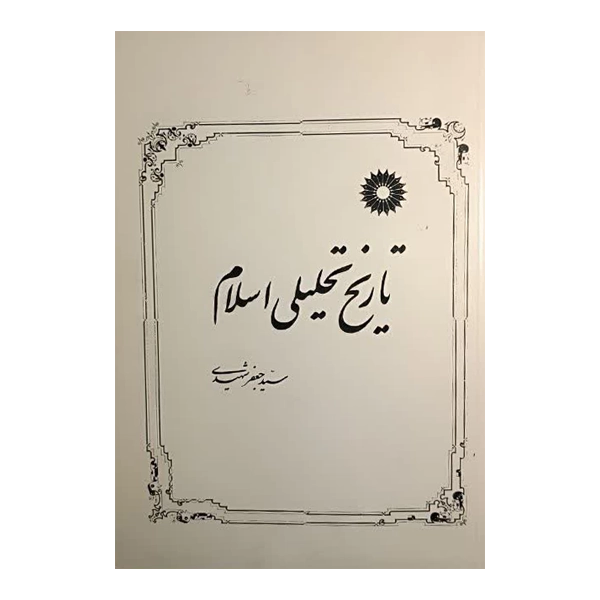 تاریخ تحلیلی اسلام
سیّد جعفر شهیدی